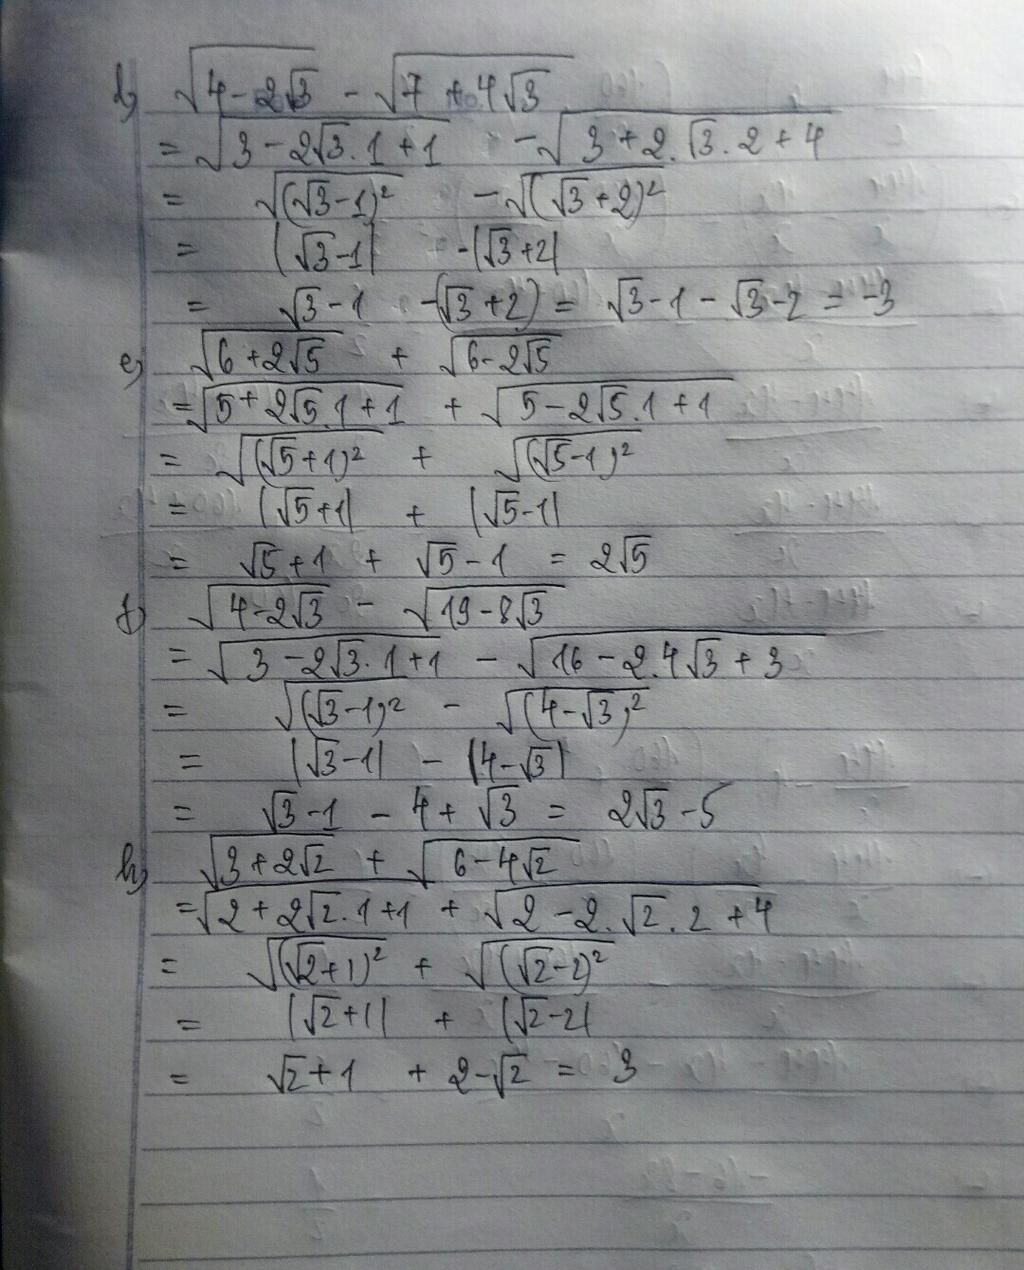 b) √(4-2√3) - √(7+4√3)
= √(3-2√3.1+1) - √(3+2.√3.2+4)
= √((√3-1)²) - √((√3+2)²)
= |√3-1| -|√3+2|
= √3-1 -(√3+2) = √3-1-√3-2 = -3
e) √(6+2√5) + √(6-2√5)
= √(5+2√5.1+1) + √(5-2√5.1+1)
= √((√5+1)²) + √((√5-1)²)
= |√5+1| + |√5-1|
= √5+1 + √5-1 = 2√5
f) √(4-2√3) - √(19-8√3)
= √(3-2√3.1+1) - √(16-2.4√3+3)
= √((√3-1)²) - √((4-√3)²)
= |√3-1| - |4-√3|
= √3-1 - 4+√3 = 2√3-5
h) √(3+2√2) + √(6-4√2)
= √(2+2√2.1+1) + √(2-2.√2.2+4)
= √((√2+1)²) + √((√2-2)²)
= |√2+1| + |√2-2|
= √2+1 + 2-√2 = 3